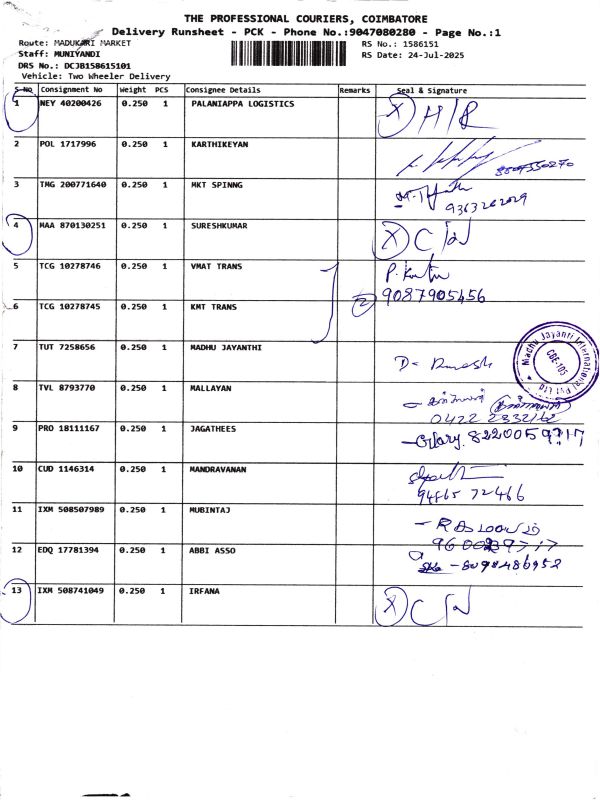 THE PROFESSIONAL COURIERS, COIMBATORE
Delivery Runsheet - PCK - Phone No.:9047080280 - Page No.:1
Route: MADUKARI MARKET
RS No.: 1586151
Staff: MUNIYANDI
RS Date: 24-Jul-2025
DRS No.: DCJB158615101
Vehicle: Two Wheeler Delivery
S No Consignment No Weight PCS Consignee Details Remarks Seal & Signature
1 NEY 40200426 0.250 1 PALANIAPPA LOGISTICS X
2 POL 1717996 0.250 1 KARTHIKEYAN
3 TMG 200771640 0.250 1 MKT SPINNG
9363202029
4 MAA 870130251 0.250 1 SURESHKUMAR X
5 TCG 10278746 0.250 1 VMAT TRANS
2 9087905456
6 TCG 10278745 0.250 1 KMT TRANS
7 TUT 7258656 0.250 1 MADHU JAYANTHI
Madhu Jayanti International Pvt Ltd
CBE-105
8 TVL 8793770 0.250 1 MALLAYAN
0422 2332162
9 PRO 18111167 0.250 1 JAGATHEES 8220059717
10 CUD 1146314 0.250 1 MANDRAVANAN
94865 72466
11 IXM 508507989 0.250 1 MUBINTAJ
12 EDQ 17781394 0.250 1 ABBI ASSO
13 IXM 508741049 0.250 1 IRFANA X